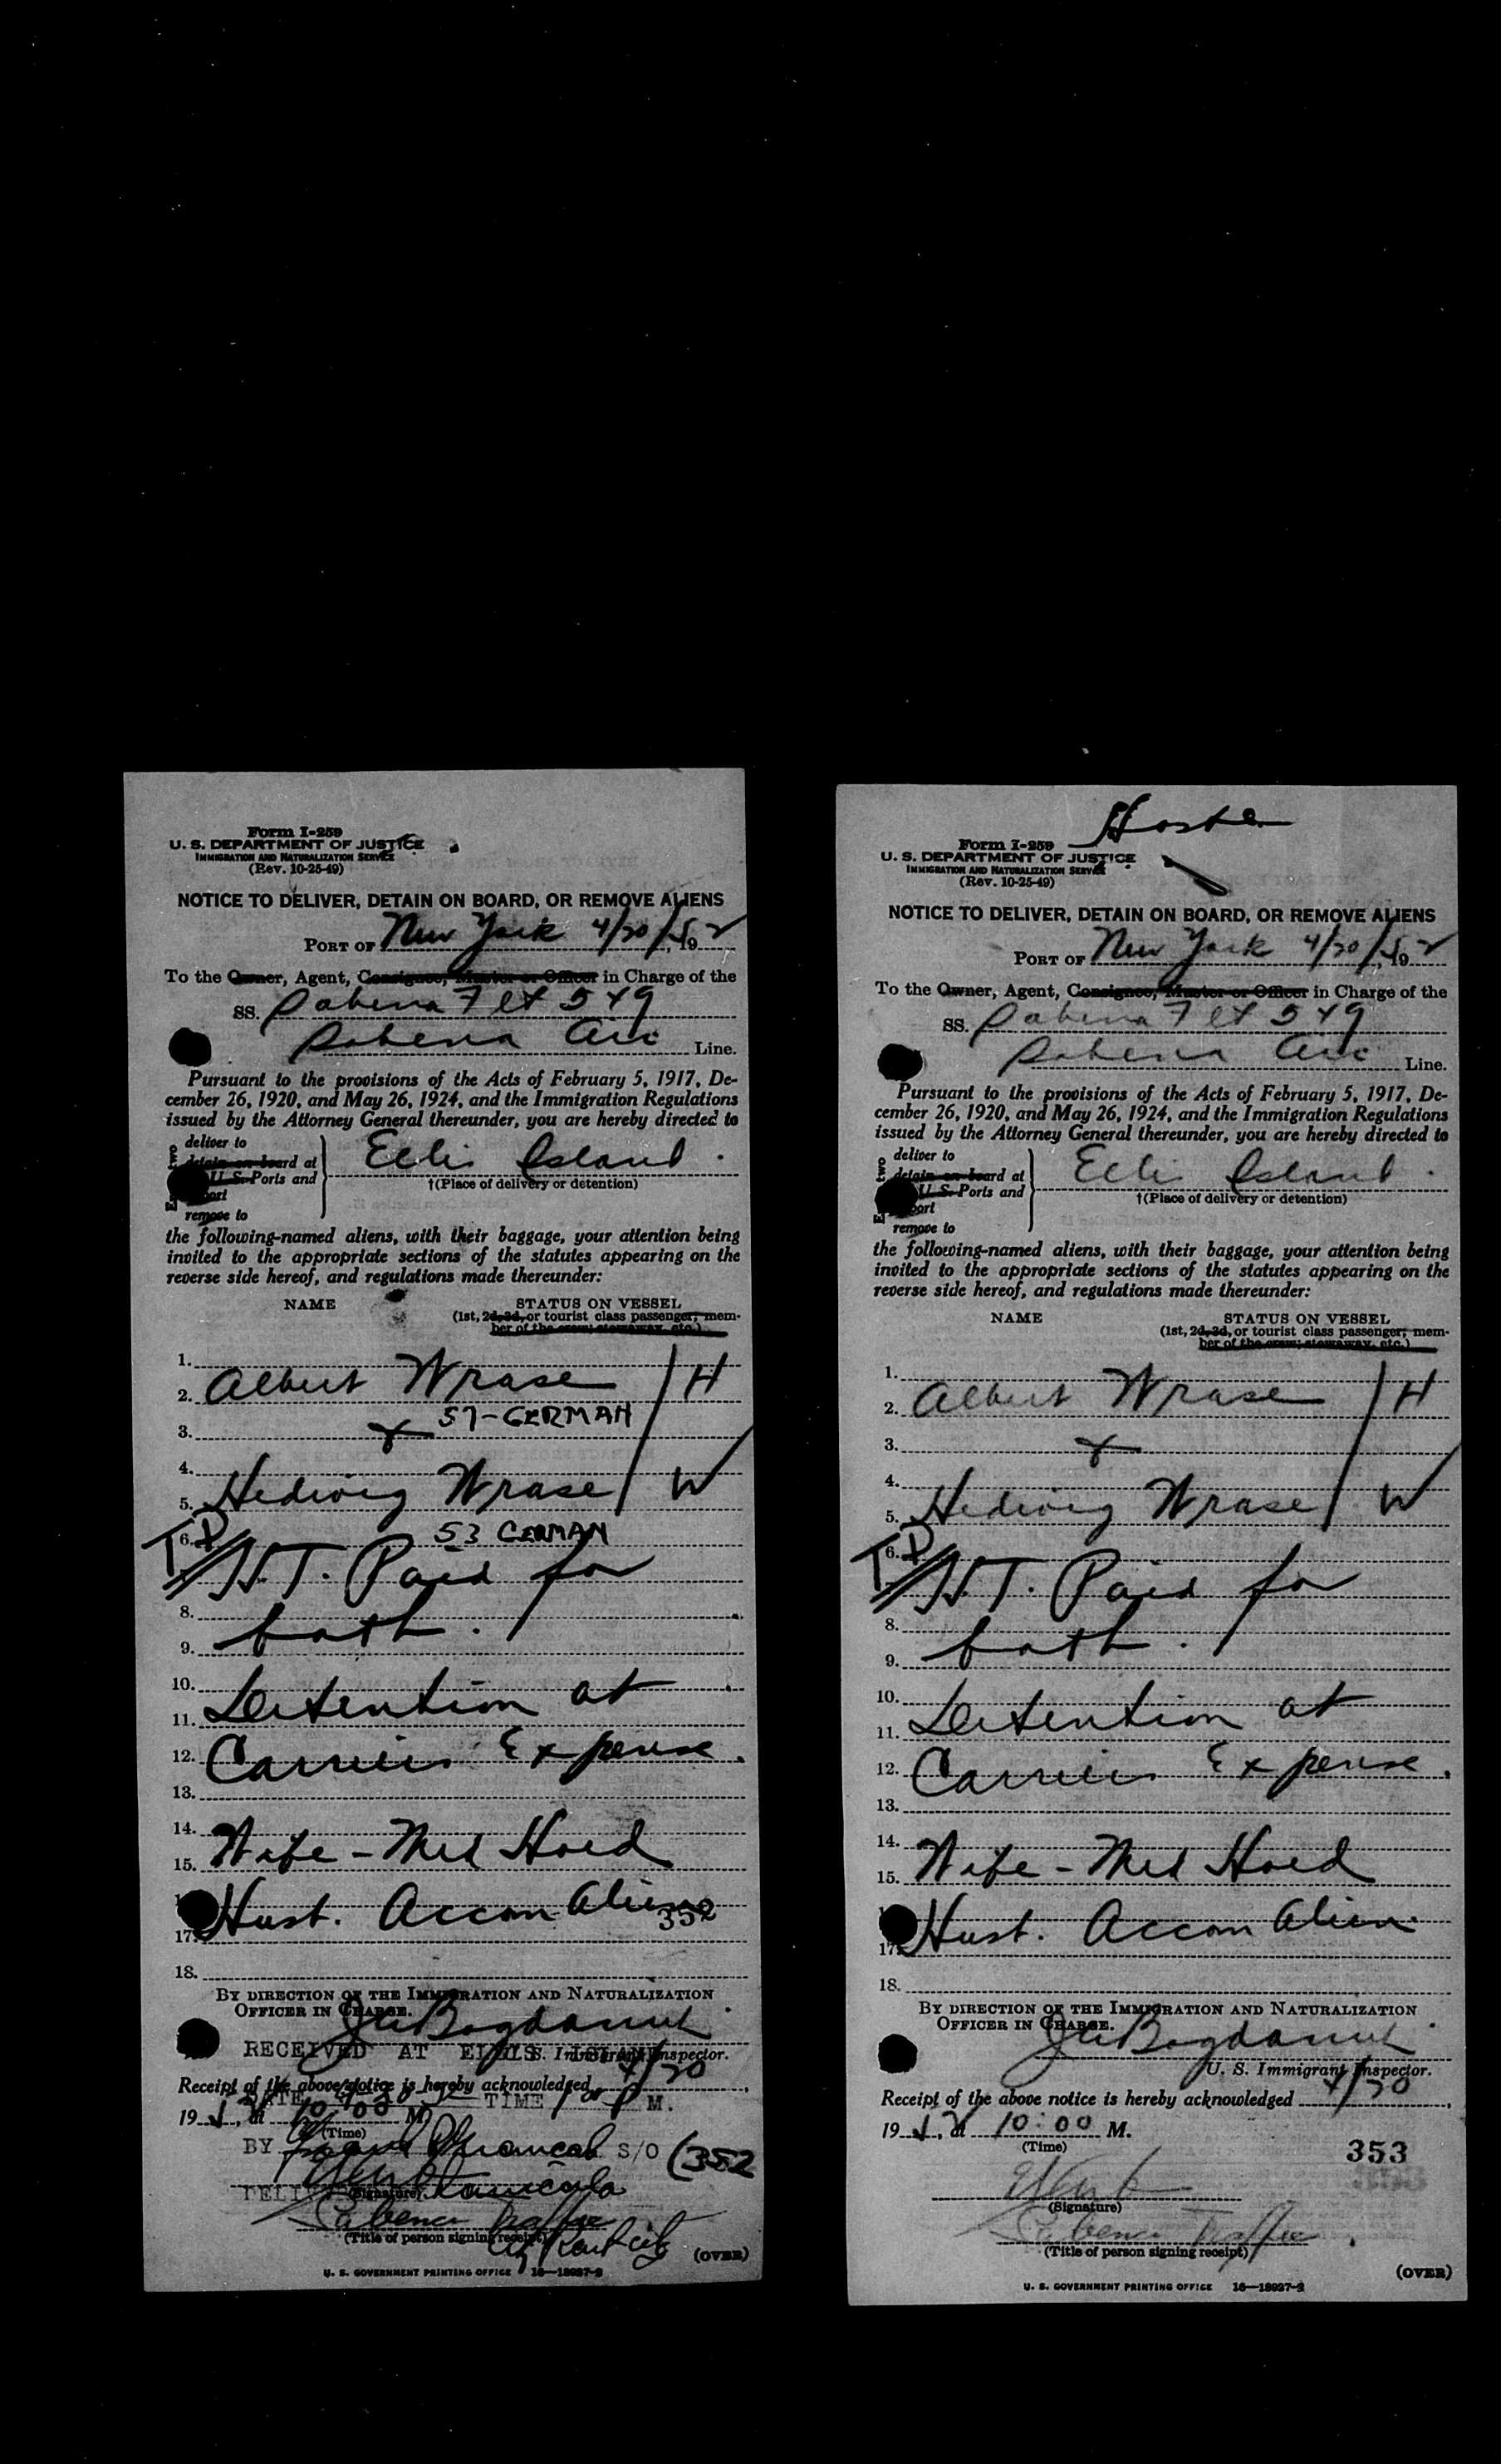 Form I-259
U. S. DEPARTMENT OF JUSTICE
IMMIGRATION AND NATURALIZATION SERVICE
(Rev. 10-25-49)
NOTICE TO DELIVER, DETAIN ON BOARD, OR REMOVE ALIENS
PORT OF New York 4/30/52, 19
To the Owner, Agent, Consignee, Master or Officer in Charge of the
SS. Sabena Flt 549
Sabena Air Line.
Pursuant to the provisions of the Acts of February 5, 1917, De-
cember 26, 1920, and May 26, 1924, and the Immigration Regulations
issued by the Attorney General thereunder, you are hereby directed to
deliver to
detain on board at
U. S. Ports and
remove to
Ellis Island.
†(Place of delivery or detention)
the following-named aliens, with their baggage, your attention being
invited to the appropriate sections of the statutes appearing on the
reverse side hereof, and regulations made thereunder:
NAME STATUS ON VESSEL
(1st, 2d, 3d, or tourist class passenger; mem-
ber of the crew; stowaway, etc.)
1.
2. Albert Wrase / H
57-GERMAN
3. &
4.
5. Hedwig Wrase / W
6. TD 53 GERMAN
H.T. Paid for
8.
9. both.
10.
11. Detention at
12. Carriers Expense.
13.
14.
15. Wife - Med Hold
Hust. Accom Alien
352
17.
18.
BY DIRECTION OF THE IMMIGRATION AND NATURALIZATION
OFFICER IN CHARGE.
Bogdanuk
RECEIVED AT ELLIS ISLAND
U. S. Immigrant Inspector.
Receipt of the above notice is hereby acknowledged 4/30,
DATE TIME M.
1952, at 10:00 M.
(Time)
BY S/O (352
(Signature)
Sabena Traffic
(Title of person signing receipt)
(OVER)
U. S. GOVERNMENT PRINTING OFFICE 16—18927-2
Form I-259
U. S. DEPARTMENT OF JUSTICE
IMMIGRATION AND NATURALIZATION SERVICE
(Rev. 10-25-49)
NOTICE TO DELIVER, DETAIN ON BOARD, OR REMOVE ALIENS
PORT OF New York 4/30/52, 19
To the Owner, Agent, Consignee, Master or Officer in Charge of the
SS. Sabena Flt 549
Sabena Air Line.
Pursuant to the provisions of the Acts of February 5, 1917, De-
cember 26, 1920, and May 26, 1924, and the Immigration Regulations
issued by the Attorney General thereunder, you are hereby directed to
deliver to
detain on board at
U. S. Ports and
remove to
Ellis Island.
†(Place of delivery or detention)
the following-named aliens, with their baggage, your attention being
invited to the appropriate sections of the statutes appearing on the
reverse side hereof, and regulations made thereunder:
NAME STATUS ON VESSEL
(1st, 2d, 3d, or tourist class passenger; mem-
ber of the crew; stowaway, etc.)
1.
2. Albert Wrase / H
3. &
4.
5. Hedwig Wrase / W
6. TD
H.T. Paid for
8.
9. both.
10.
11. Detention at
12. Carriers Expense.
13.
14.
15. Wife - Med Hold
Hust. Accom Alien
17.
18.
BY DIRECTION OF THE IMMIGRATION AND NATURALIZATION
OFFICER IN CHARGE.
Bogdanuk
U. S. Immigrant Inspector.
Receipt of the above notice is hereby acknowledged 4/30,
1952, at 10:00 M.
(Time)
353
(Signature)
Sabena Traffic
(Title of person signing receipt)
(OVER)
U. S. GOVERNMENT PRINTING OFFICE 16—18927-2